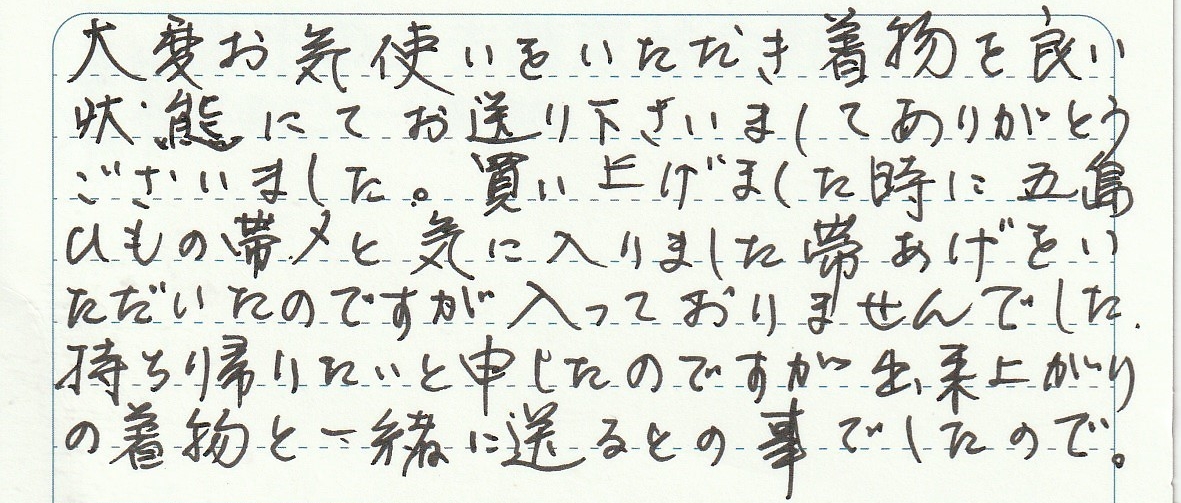 大変お気使いをいただき着物を良い
状態にてお送り下さいましてありがとう
ございました。買い上げました時に五島
ひもの帯〆と気に入りました帯あげをい
ただいたのですが入っておりませんでした.
持ち帰りたいと申したのですが出来上がり
の着物と一緒に送るとの事でしたので。